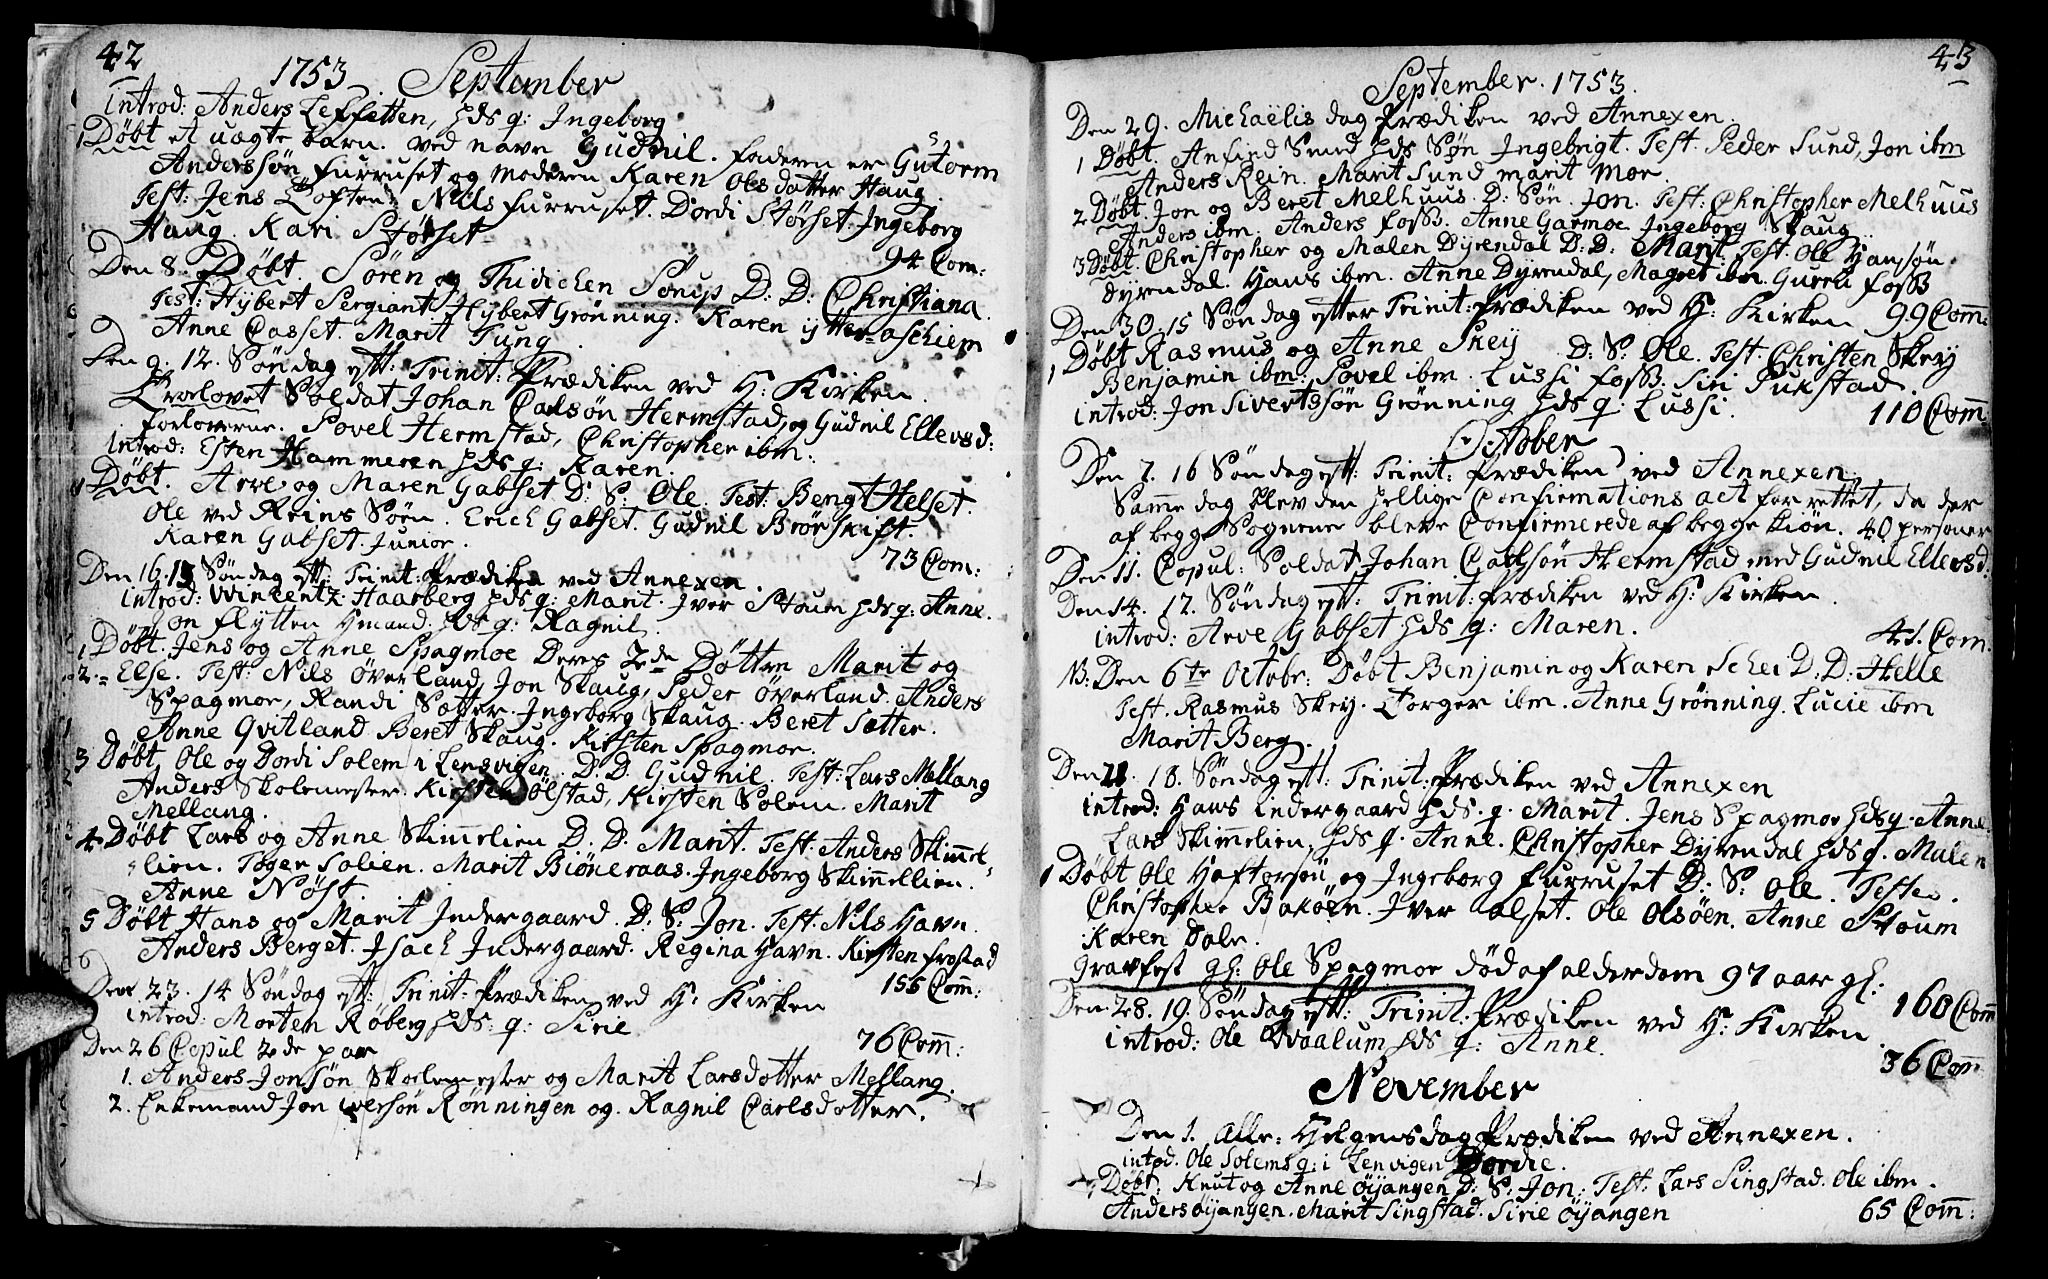 42
1753 September
introd: Anders Leffetten, hds q: Ingeborg
1 Døbt et uægte barn. ved navn Gudnil. faderen er Gutorm
Anderssøn Furruset og moderen Karen Olsdatter Haug
Test: Jens Loften. Nils Furruset. Dordi Størset. Ingeborg
Haug. Kari Størset
94 Com:
Den 8. Døbt. Søren og Thidichen Sørup D: D: Christiana.
Test: Hybert Sergiant. Hybert Grønning. Karen ytteraschiem
Anne Casset. Marit Tung.
Den 9. 12. Søndag eft: Trinit: Prædiken ved H: Kirken.
Trolovet Soldat Johan Carlsøn Hermstad, og Gudnil Ellevsd:
forloverne. Povel Hermstad, Christopher ibm.
introd: Esten Hammeren hds q: Karen.
Døbt. Arve og Maren Gabset D: S: Ole. Test: Bengt Helset.
Ole ved Reins Søen. Erich Gabset. Gudnil Brønskift.
Karen Gabset Junior.
73 Com:
Den 16. 13 Søndag eft: Trinit: Prædiken ved Annexen.
introd: Wincentz Haarberg hds q: Marit. Iver Stoum hds q: Anne.
Jon flytten Hmand. hds q: Ragnil.
1 Døbt. Jens og Anne Spagmoe Deres 2de Døttre Marit og
2 Else. Test: Nils Överland, Jon Skaug, Peder Överland. Anders
Spagmoe, Randi Sætter. Ingeborg Skaug. Beret Sætter.
Anne Qvitland Beret Skaug. Kirsten Spagmoe.
3 Døbt, Ole og Dordi Solem i Lensvigen. D: D. Gudnil. Test: Lars Mellang
Anders Skolemester. Kirsten Ølstad, Kirsten Solem. Marit
Mellang.
4 Døbt Lars og Anne Skimelien D. D. Marit. Test: Anders Skimel-
lien. Tøger Solien. Marit Biöneraas. Ingeborg Skimellien.
Anne Nøst.
5 Døbt Hans og Marit Indergaard. D: S: Jon. Test: Nils Havn.
Anders Berget. Isach Indergaard. Regina Havn. Kirsten frostad
156 Com:
Den 23. 14 Søndag eft: Trinit: Prædiken ved H: Kirken
introd: Morten Røberg hds: q: Sirie
76 Com:
Den 26 Copul 2de par
1. Anders Jonsøn Skolemester og Marit Larsdotter Mellang.
2. Enkemand Jon iversøn Rønningen og Ragnil Carlsdotter.
43
September. 1753.
Den 29. Michaëlis dag Prædiken ved Annexen.
1 Døbt. Anfind Smed hds Søn Ingebrigt. Test. Peder Sund, Jon ibm
Anders Rein. Marit Sund marit Moe.
2 Døbt. Jon og Beret Melhuus D: Søn. Jon. Test: Christopher Melhuus
Anders ibm. Anders foss. Anne Garmoe Ingeborg Skaug.
3 Døbt. Christopher og Malen Dyrendal D: D: Marit. Test. Ole Hansøn.
Dyrendal. Hans ibm. Anne Dyrendal, Magret ibm. Guren foss
Den 30. 15 Søndag efter Trinit: Prædiken ved H: Kirken 99 Com:
1 Døbt Rasmus og Anne Skey D: S: Ole. Test. Christen Skey
Benjamin ibm. Povel ibm. Lussi foss. Siri Pukstad.
introd: Jon Sivertssøn Grønning hds q: Lussi.
110 Com:
October
Den 7. 16 Søndag eft: Trinit: Prædiken ved Annexen.
Same dag blev den hellige Confirmations act forrettet, da der
af begge Sognene bleve Confirmerede af begge kiøn. 40 personer
Den 11. Copul: Soldat Johan Carlsøn Hermstad med Gudnil Ellevsd:
Den 14. 17. Søndag eft: Trinit: Prædiken ved H: Kirken.
introd: Arve Gabset hds q: Maren.
41. Com.
NB: Den 6te Octobr: Døbt Benjamin og Karen Schei D: D: Helle
Test. Rasmus Skey. Torger ibm. Anne Grønning. Lucie ibm
Marit Berg.
Den 21. 18. Søndag eft: Trinit: Prædiken ved Annexen
introd: Hans indergaard hds. q. Marit. Jens Spagmoe hds q. Anne.
Lars Skimelien, hds q. Anne. Christopher Dyrendal hds q. Malen
1 Døbt Ole Haftorsøn og Ingeborg furruset D: S: Ole. Teste.
Christopher Bakøen. Iver alset. Ole Olsøen. Anne Stoum
Karen Dale.
gravfest gl: Ole Spagmoe død af alderdom 97 aar gl:
160 Com
Den 28. 19. Søndag eft: Trinit: Prædiken ved H: Kirken.
introd: Ole Waalum hds q: Anne.
36 Com
November
Den 1. Alle: Helgensdag Prædiken ved Annexen.
introd. Ole Solems q: i Lenvigen Dordie.
Døbt: Knut og Anne Øijangen D: S: Jon: Test: Lars Singstad. Ole ibm.
Anders Øijangen. Marit Singstad. Sirie Øijangen
65 Com: